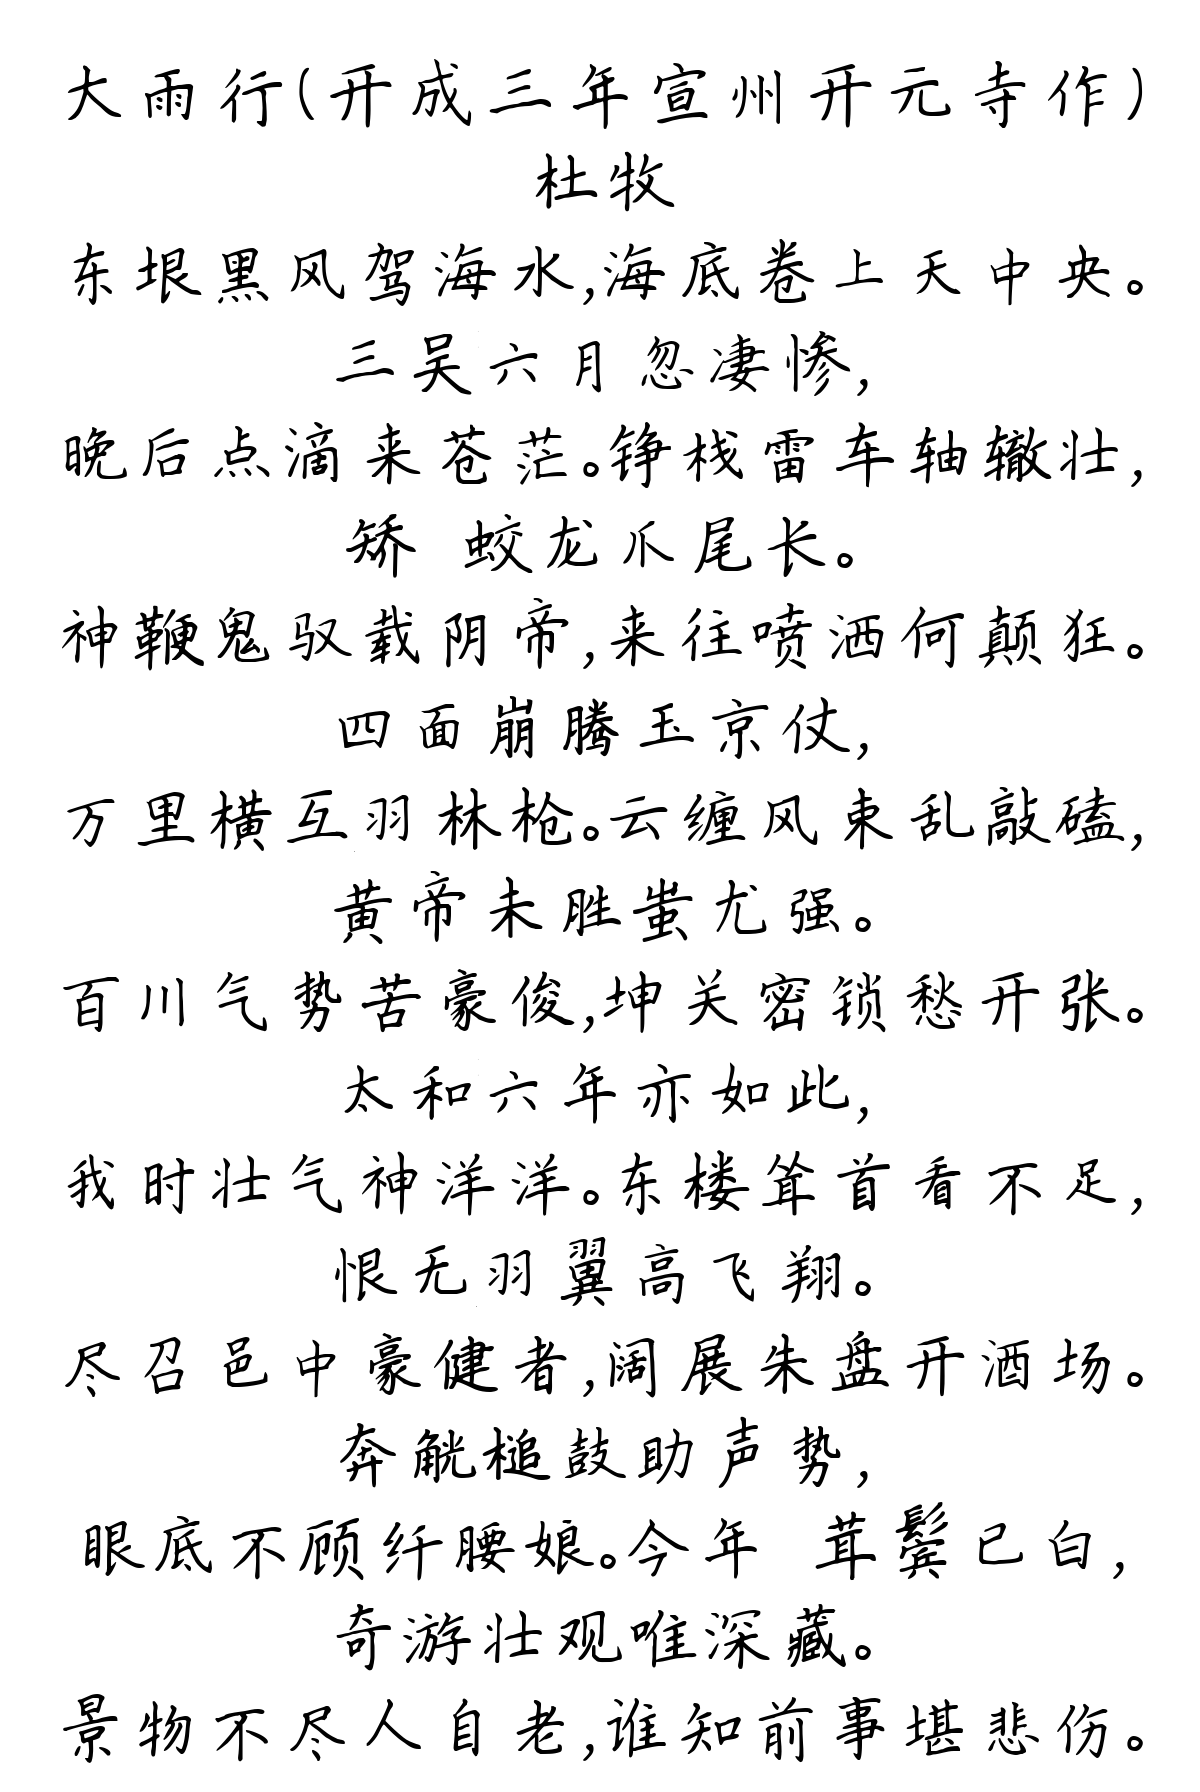 大雨行(开成三年宣州开元寺作)
杜牧
东垠黑风驾海水,海底卷上天中央。
三吴六月忽凄惨,
晚后点滴来苍茫。铮栈雷车轴辙壮,
矫 蛟龙爪尾长。
神鞭鬼驭载阴帝,来往喷洒何颠狂。
四面崩腾玉京仗,
万里横互羽林枪。云缠风束乱敲磕,
黄帝未胜蚩尤强。
百川气势苦豪俊,坤关密锁愁开张。
太和六年亦如此,
我时壮气神洋洋。东楼耸首看不足,
恨无羽翼高飞翔。
尽召邑中豪健者,阔展朱盘开酒场。
奔觥槌鼓助声势,
眼底不顾纤腰娘。今年 茸鬓已白,
奇游壮观唯深藏。
景物不尽人自老,谁知前事堪悲伤。